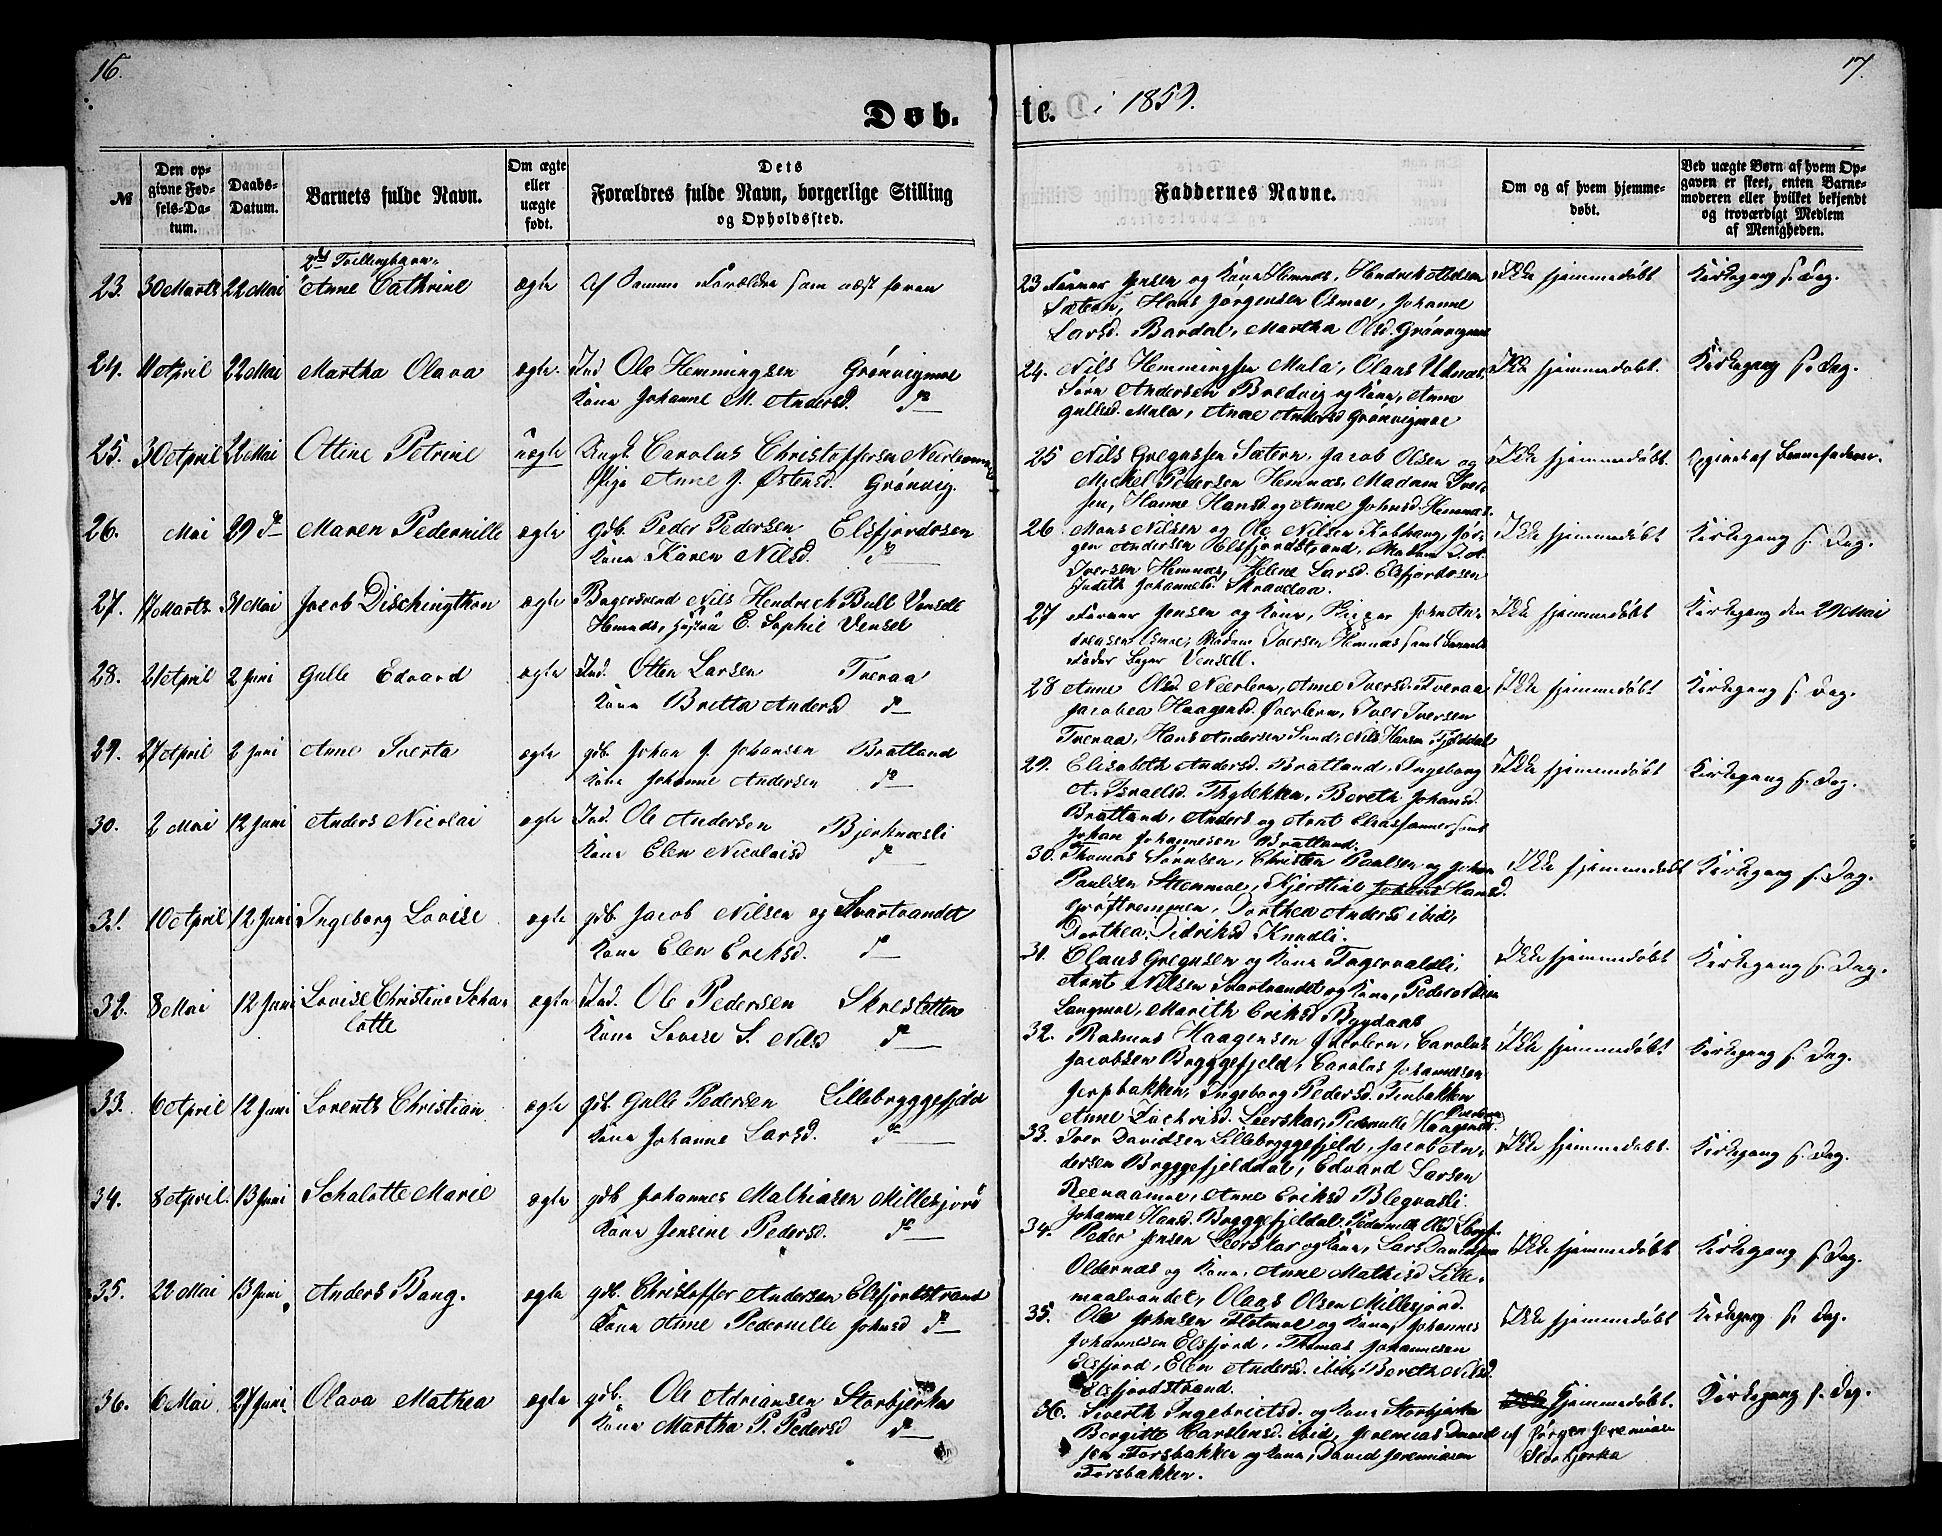 16.
17.
Døb. te. i 1859.
№
Den opgivne Fødsels-Datum.
Daabs-Datum.
Barnets fulde Navn.
Om ægte eller uægte født.
Dets Forældres fulde Navn, borgerlige Stilling og Opholdssted.
Faddernes Navne.
Om og af hvem hjemmedøbt.
Ved uægte Børn af hvem Opgaven er skeet, enten Barnemoderen eller hvilket bekjendt og troværdigt Medlem af Menigheden.
2d Tvillingbarn
23. 30 Marts 22 Mai Anne Cathrine ægte Af Samme Forældre som næst foran
23 Jensen og Kone Hemnæs,
Sætern, Hans Jørgensen Osmoe, Johanne
Larsd. Bardal, Martha Olsd. Grønvigmoe
Ikke hjemmedøbt Kirkegang s. Dag.
24. 11 April 22 Mai Martha Olava ægte. Ind. Ole Hemmingsen Grønvigmoe
Kone Johanne M. Andersd. do
24. Nils Hemmingsen Mula, Olaus
Søren Andersen Bredvig og Kone, Anne
Gullesd. Mula, Anne Andersd Grønvigmoe
Ikke hjemmedøbt. Kirkegang s. Dag.
25. 30 April 22 Mai Ottine Petrine uægte Ungk. Carolus Christoffersen
Pige Anne J. Østensd. Grønvig.
25 Nils Gregussen Sætern, Jacob Olsen og
Mickel Pedersen Hemnæs, Madam Iversen,
Hanne Hansd. og Anne Johnsd. Hemnæs.
Ikke hjemmedøbt. Opgivet af Barnefaderen.
26. Mai 29 do Maren Pedernille ægte gdb. Peder Pedersen Elsfjordosen
Kone Karen Nilsd. do
26. Mons Nilsen og Ole Nilsen Kobvaag, Jørgen
Andersen Elsfjordstrand, Madam
Iversen Hemnæs, Helene Larsd. Elsfjordosen
Judith Johannesd. Skravlaa.
Ikke hjemmedøbt Kirkegang s. Dag.
27. 17 Marts 31 Mai Jacob Dischingthon ægte Bagersvend Nils Hendrich Bull Vensell
Hemnæs, Hustru E. Sophie Vensel
27 Jensen og Kone,
Osmoe, Madam Iversen Hemnæs samt Barnets
Fader Bager Vensell.
Ikke hjemmedøbt Kirkegang den 29 Mai
28. 21 April 2 Juni Gulle Edvard ægte Ind. Otten Larsen Tveraa
Kone Britta Andersd do
28 Anne Olsd. Neerlern, Anne Iversd. Tveraa,
Jacobea Haagensd. Øverlern, Iver Iversen
Tveraa, Hans Andersen Sund, Nils Hansen Fjelddal
Ikke hjemmedøbt Kirkegang s. Dag.
29. 27 April 2 Juni Anne Sverta ægte gdb. Johan J. Johansen Bratland
Kone Johanne Andersen do
29. Elisabeth Andersd. Bratland, Ingeborg
A. Israelsd. Thybekken, Bereth Johansd.
Bratland, Anders og Arnt Eliassønner samt
Johan Johannesen Bratland.
Ikke hjemmedøbt Kirkegang s. Dag.
30. 2 Mai 12 Juni Anders Nicolai ægte Ind. Ole Andersen Bjerknæsli
Kone Elen Nicolaisd do
30. Thomas Sørensen, Christen Paulsen og Johan
Paulsen Stenmoe, Kjerstine Hansd.
Groftremmen, Dorthea Andersd ibid,
Dorthea Didriksd Knudli.
Ikke hjemmedøbt Kirkegang s. Dag.
31. 10 April 12 Juni Ingeborg Lovise ægte gdb. Jacob Nilsen og Svartvandet
Kone Elen Eriksd. do
31. Claus Gregusen og Kone Fagervaldli,
Arnt Nilsen Svartvandet og Kone, Peder
Langmoe, Marith Eriksd Bygdaas
Ikke hjemmedøbt Kirkegang s. Dag.
32. 8 Mai 12 Juni Lovise Christine Schalotte ægte Ind. Ole Pedersen Skresletten
Kone Lovise S. Nilsd do
32. Rasmus Haagensen Øverlern, Carolus
Jacobsen Bryggefjeld, Carolus Johannesen
Jerpbakken, Ingeborg Pedersd. Finbakken
Anne Zachrisd. Leerskar, Pedernille Haagensd. Øverlern
Ikke hjemmedøbt Kirkegang s. Dag.
33. 6 April 12 Juni Lorents Christian ægte gdb. Gulle Pedersen Lillebryggefjeld
Kone Johanne Larsd. do
33. Iver Davidsen Lillebryggefjeld, Jacob Andersen
Bryggefjelddal, Edvard Larsen
Reenaamoe, Anne Eriksd. Blegvasli
Johanne Hansd. Bryggefjeldal. Pedernille Olsd
Ikke hjemmedøbt. Kirkegang s. Dag.
34. 8 April. 13 Juni Schalotte Marie ægte gdb Johannes Mathiasen Millesjord
Kone Jensine Pedersd. do
34. Peder Jensen Leerskar og Kone, Lars Danielsen
Oldernæs og Kone, Anne Mathisd Lillemaalvandet,
Olaas Olsen Millesjord.
Ikke hjemmedøbt Kirkegang s. Dag.
35. 22 Mai 13 Juni Anders Bang. ægte gdb. Christoffer Andersen Elsfjordstrand
Kone Anne Pedernille Johnsd do
35. Ole Johnsen Flotmoe og Kone, Johannes
Johannesen Elsfjord, Thomas Johannesen
Elsfjord, Elen Andersd. ibid, Bereth Nilsd
Elsfjordstrand.
Ikke hjemmedøbt Kirkegang s. Dag.
36. 6 Mai 27 Juni Olava Mathea ægte gdb. Ole Adriansen Storbjerka
Kone Martha P. Pedersd do
36. Siverth Ingebrictsd. og Kone Storbjerka
Bergitte Carstensd. ibid, Jeremias Davidsen
Forsbakken og Kone, David Jeremiasen
Forsbakken.
Hjemmedøbt
af Jørgen Jeremiasen
Storbjerka
Kirkegang s. Dag.